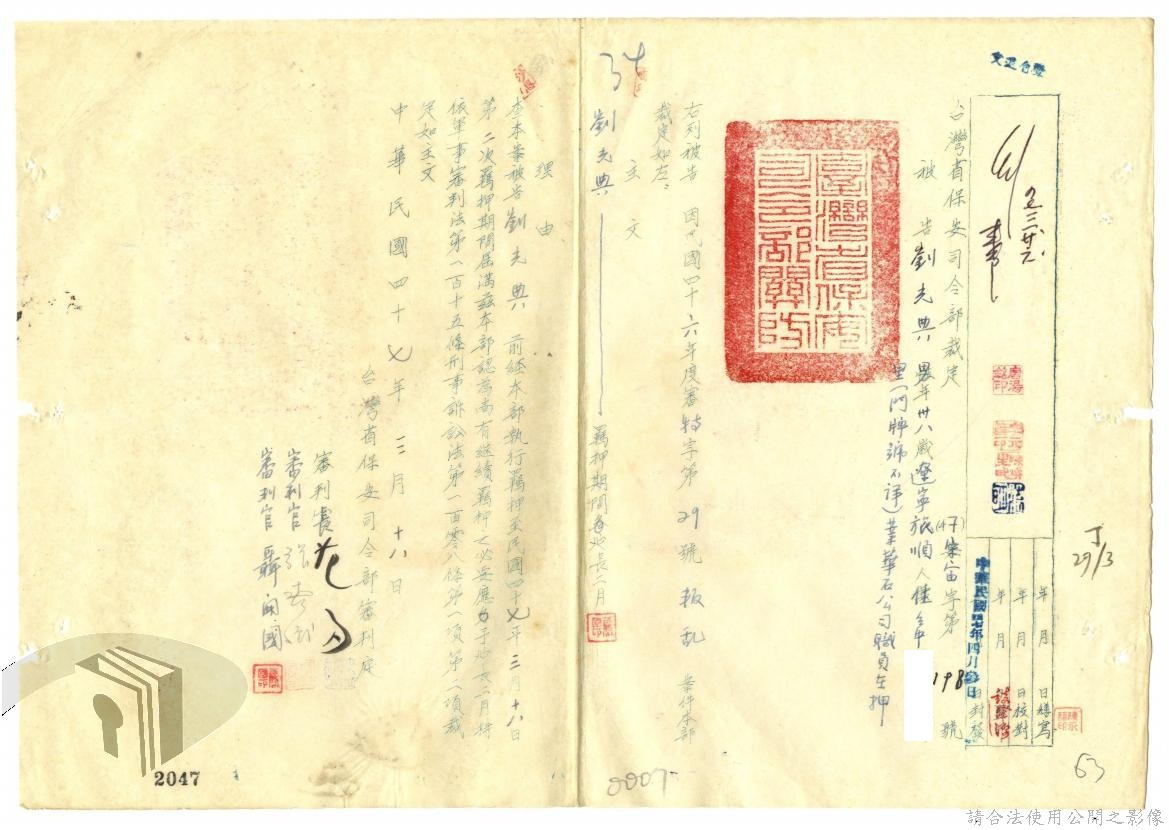 台灣省保安司令部裁定
(47)宋宙字第198號
被告 劉光典 男年卅八歲遼寧旅順人住台中
里(門牌號不詳)業華石公司職員在押
右列被告 因民國四十六年度審特字第29號叛乱案件本部
裁定如左:
主文
劉光典 羈押期間 延長二月
理由
查本案被告劉光典 前經本部執行羈押至民國四十七年三月十八日
第二次羈押期間屆滿茲本部認為尚有繼續羈押之必要應予延長二月特
依軍事審判法第一百十五條刑事訴訟法第一百零八條第一項第二項裁
定如主文
中華民國四十七年三月十八日
台灣省保安司令部審判庭
審判長
審判官
審判官 聶開國
臺灣省保安司令部關防
年 月 日繕寫
年 月 日校對
中華民國四七年四月 日封發
29/3
63
0007
2047
請合法使用公開之影像